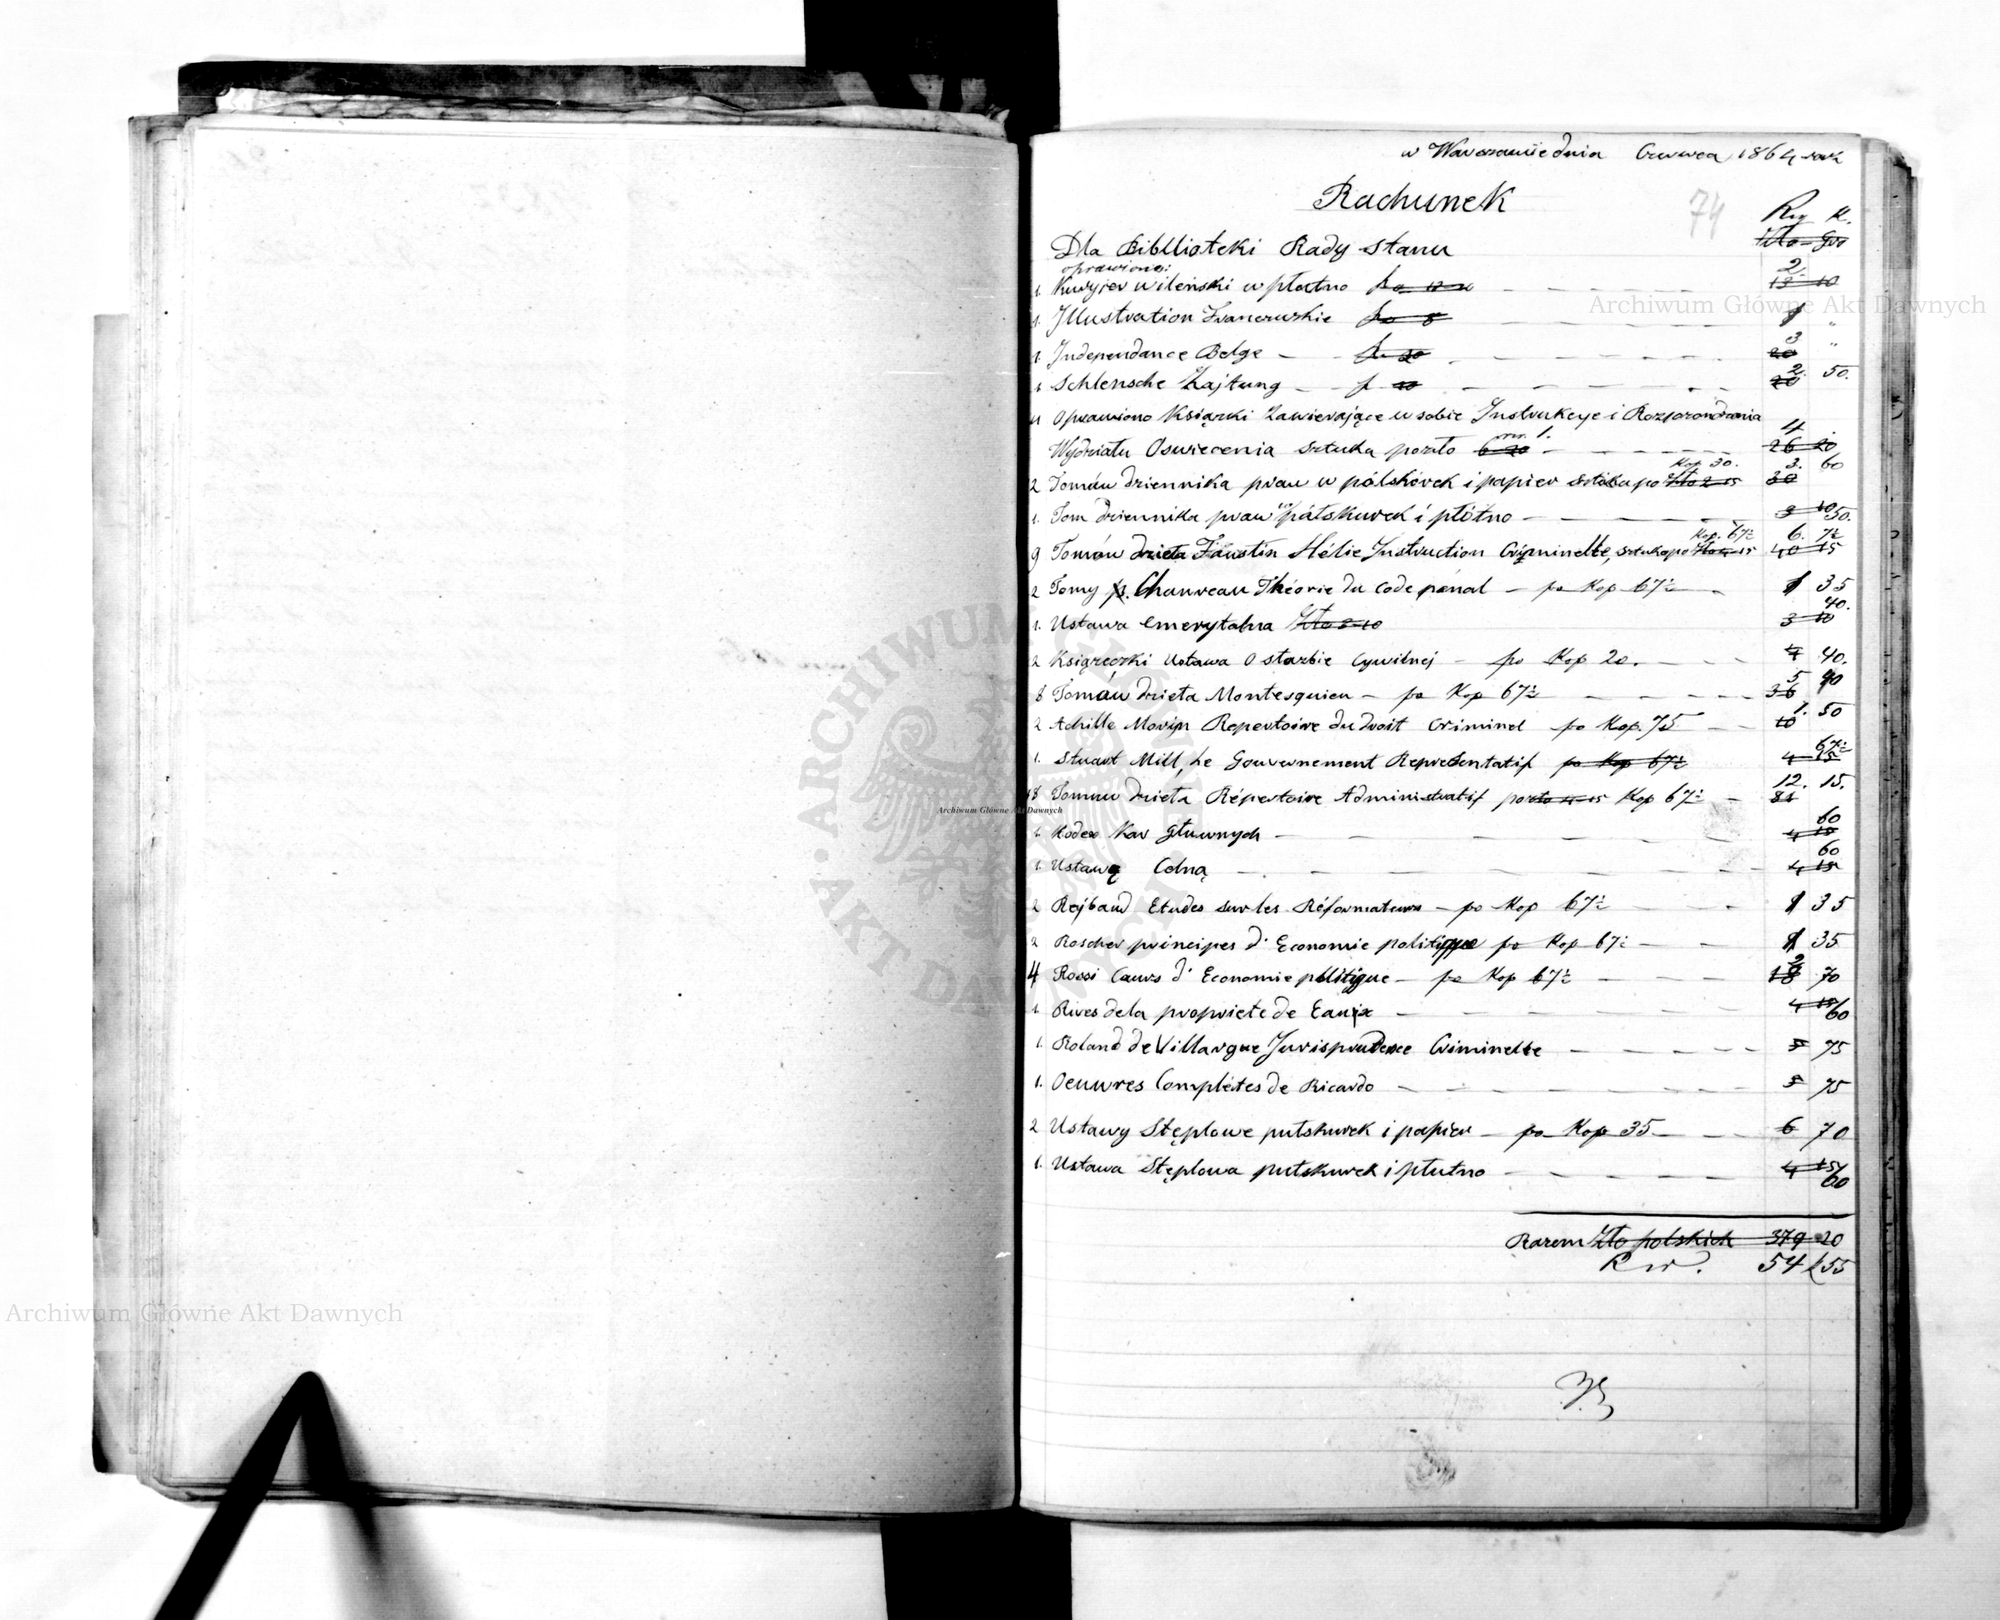 w Warszawie dnia Czerwca 1864 rok
Rachunek
74
Rsr K.
Złо Gr
Dla Bibllioteki Rady Stanu
oprawiono:
1. Kuryier wileński w płutno po 13 10 2. 13 10
1. Jllustration Francuzkie po 8 1 "
1. Jndependance Belge po 20 3 20 "
1 Schlensche Zajtung p 20 2. 50.
4 Oprawiono Ksiązki Zawierające w sobie Jnstrukcye i Rozporondzenia
Wydziału Oswiecenia sztuka pozło 6 20 rsr. 1. 4 26 20
2 Tomów dziennika praw w pólskórek i papier sztuka po Kop 30. 3. 60
1. Tom dziennika praw w pólskurek i płótno 3 10 50.
9 Tomów dzieła Faustin Hélie Jnstruction Criminelle, sztuka po Kop. 67½ 6. 7½ 40 15
2 Tomy Chauveau Théorie du Code pénal po Kop 67½ 1 35
1. Ustawa Emerytalna Zło 3 10 40. 3 10
2 Ksiązeczki Ustawa O starbie Cywilnej po Kop 20. 4 40.
8 Tomów dzieła Montesquieu po Kop 67½ 5 40 36
2 Achille Morin Repertoire du droit Criminel po Kop. 75 1. 50 10
1. Stuart Mill, Le Gouvernement Representatif po Kop 67½ 67½ 4 15
18 Tomuw dzieła Répertoire Administratif pozło 4 15 Kop 67½ 12. 15. 81
1. Kodex Kar Głuwnych 60 4 15
1. Ustawę Celną 60 4 15
2 Rejbaud Etudes sur les Réformateurs po Kop 67½ 1 35
2 Roscher principes d'Economie politique po Kop 67½ 1 35
4 Rossi Cours d'Economie politique po Kop 67½ 2 18 70
1. Rives de la propriete de Eaux 4 15 60
1. Roland de Villargue Jurisprudence Criminelle 5 75
1. Oeuwres Complètes de Ricardo 5 75
2 Ustawy Stęplowe pulskurek i papier po Kop 35 6 70
1. Ustawa Stęplowa pułskurek i płutno 4 15 60
Razem Zło polskich 379 20
Rsr. 54 k 55
Archiwum Główne Akt Dawnych
Archiwum Główne Akt Dawnych
Archiwum Główne Akt Dawnych